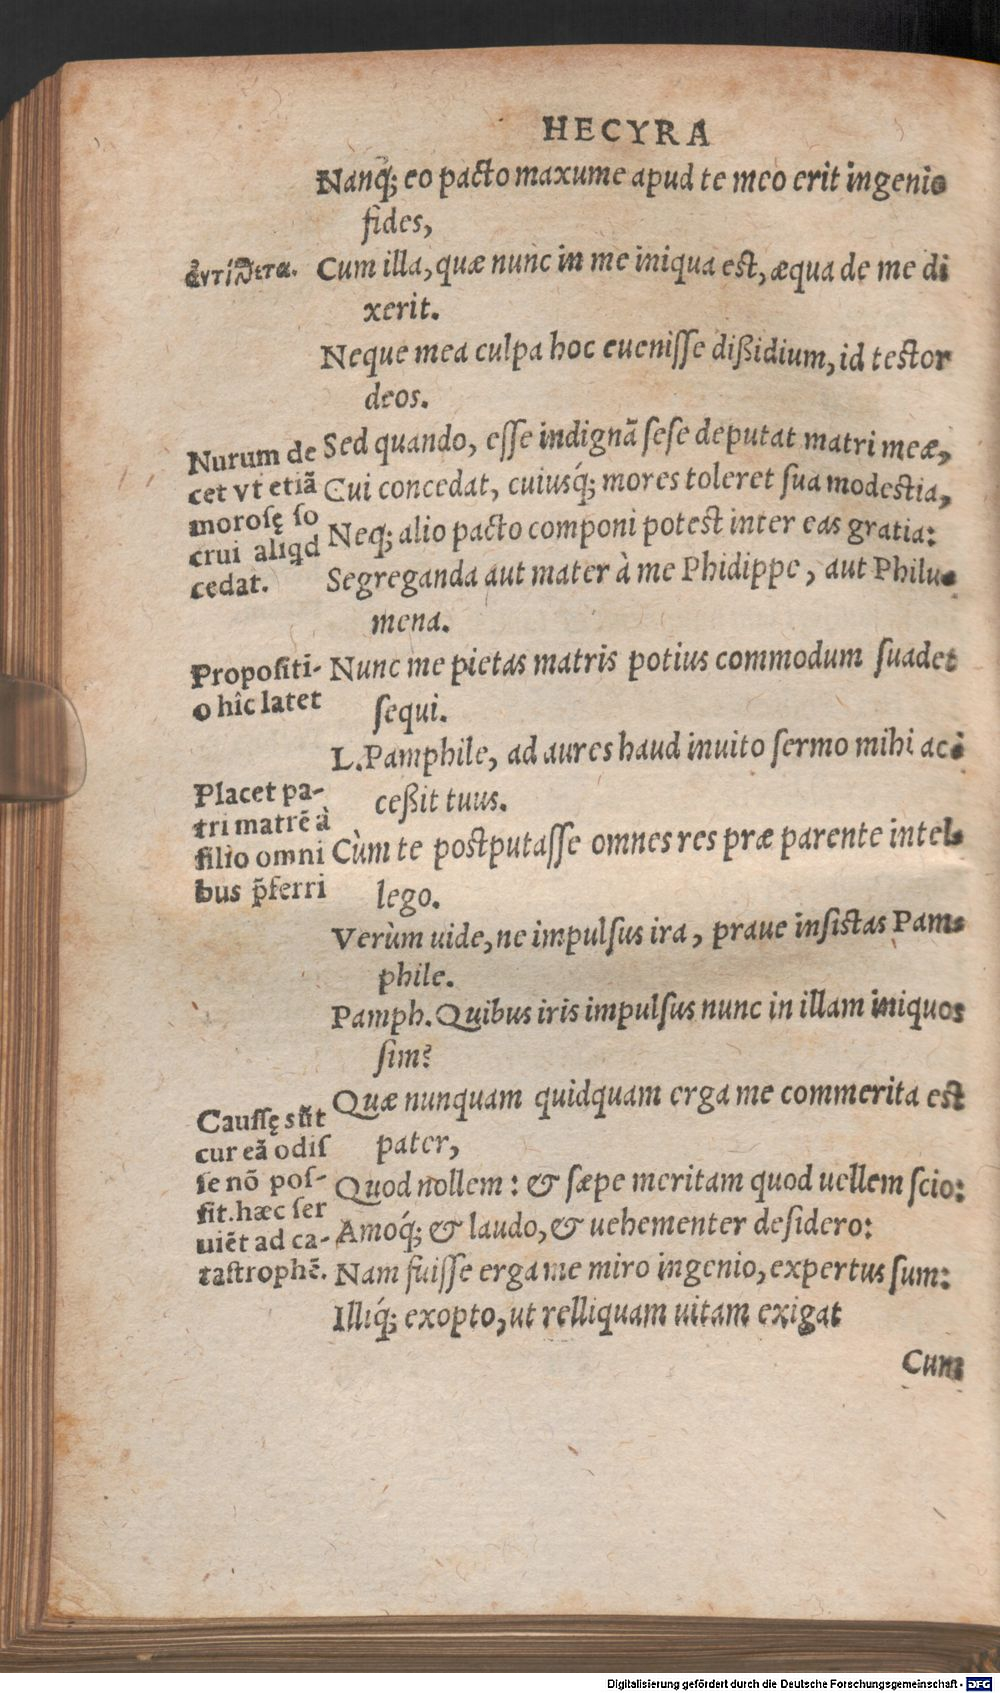 HECYRA
Nanq́; eo pacto maxume apud te meo erit ingenio
fides,
ἀντίθετα.
Cum illa, quæ nunc in me iniqua est, æqua de me di
xerit.
Neque mea culpa hoc euenisse dißidium, id testor
deos.
Nurum de
cet vt etiã
morosę so
crui aliqd
cedat.
Sed quando, esse indignã sese deputat matri meæ,
Cui concedat, cuiusq́; mores toleret sua modestia,
Neq; alio pacto componi potest inter eas gratia:
Segreganda aut mater à me Phidippe, aut Philu-
mena.
Propositi-
o hîc latet
Nunc me pietas matris potius commodum suadet
sequi.
L. Pamphile, ad aures haud inuito sermo mihi ac-
ceßit tuus.
Placet pa-
tri matrẽ à
filio omni
bus p̃ferri
Cùm te postputasse omnes res præ parente intel-
lego.
Verùm uide, ne impulsus ira, praue insistas Pam-
phile.
Pamph. Quibus iris impulsus nunc in illam iniquos
sim?
Caussę sũt
cur eã odis
se nõ pos-
sit. hæc ser
uiẽt ad ca-
tastrophẽ.
Quæ nunquam quidquam erga me commerita est
pater,
Quod nollem: & sæpe meritam quod uellem scio:
Amoq́; & laudo, & uehementer desidero:
Nam fuisse erga me miro ingenio, expertus sum:
Illiq́; exopto, ut relliquam uitam exigat
Cum
Digitalisierung gefördert durch die Deutsche Forschungsgemeinschaft - DFG